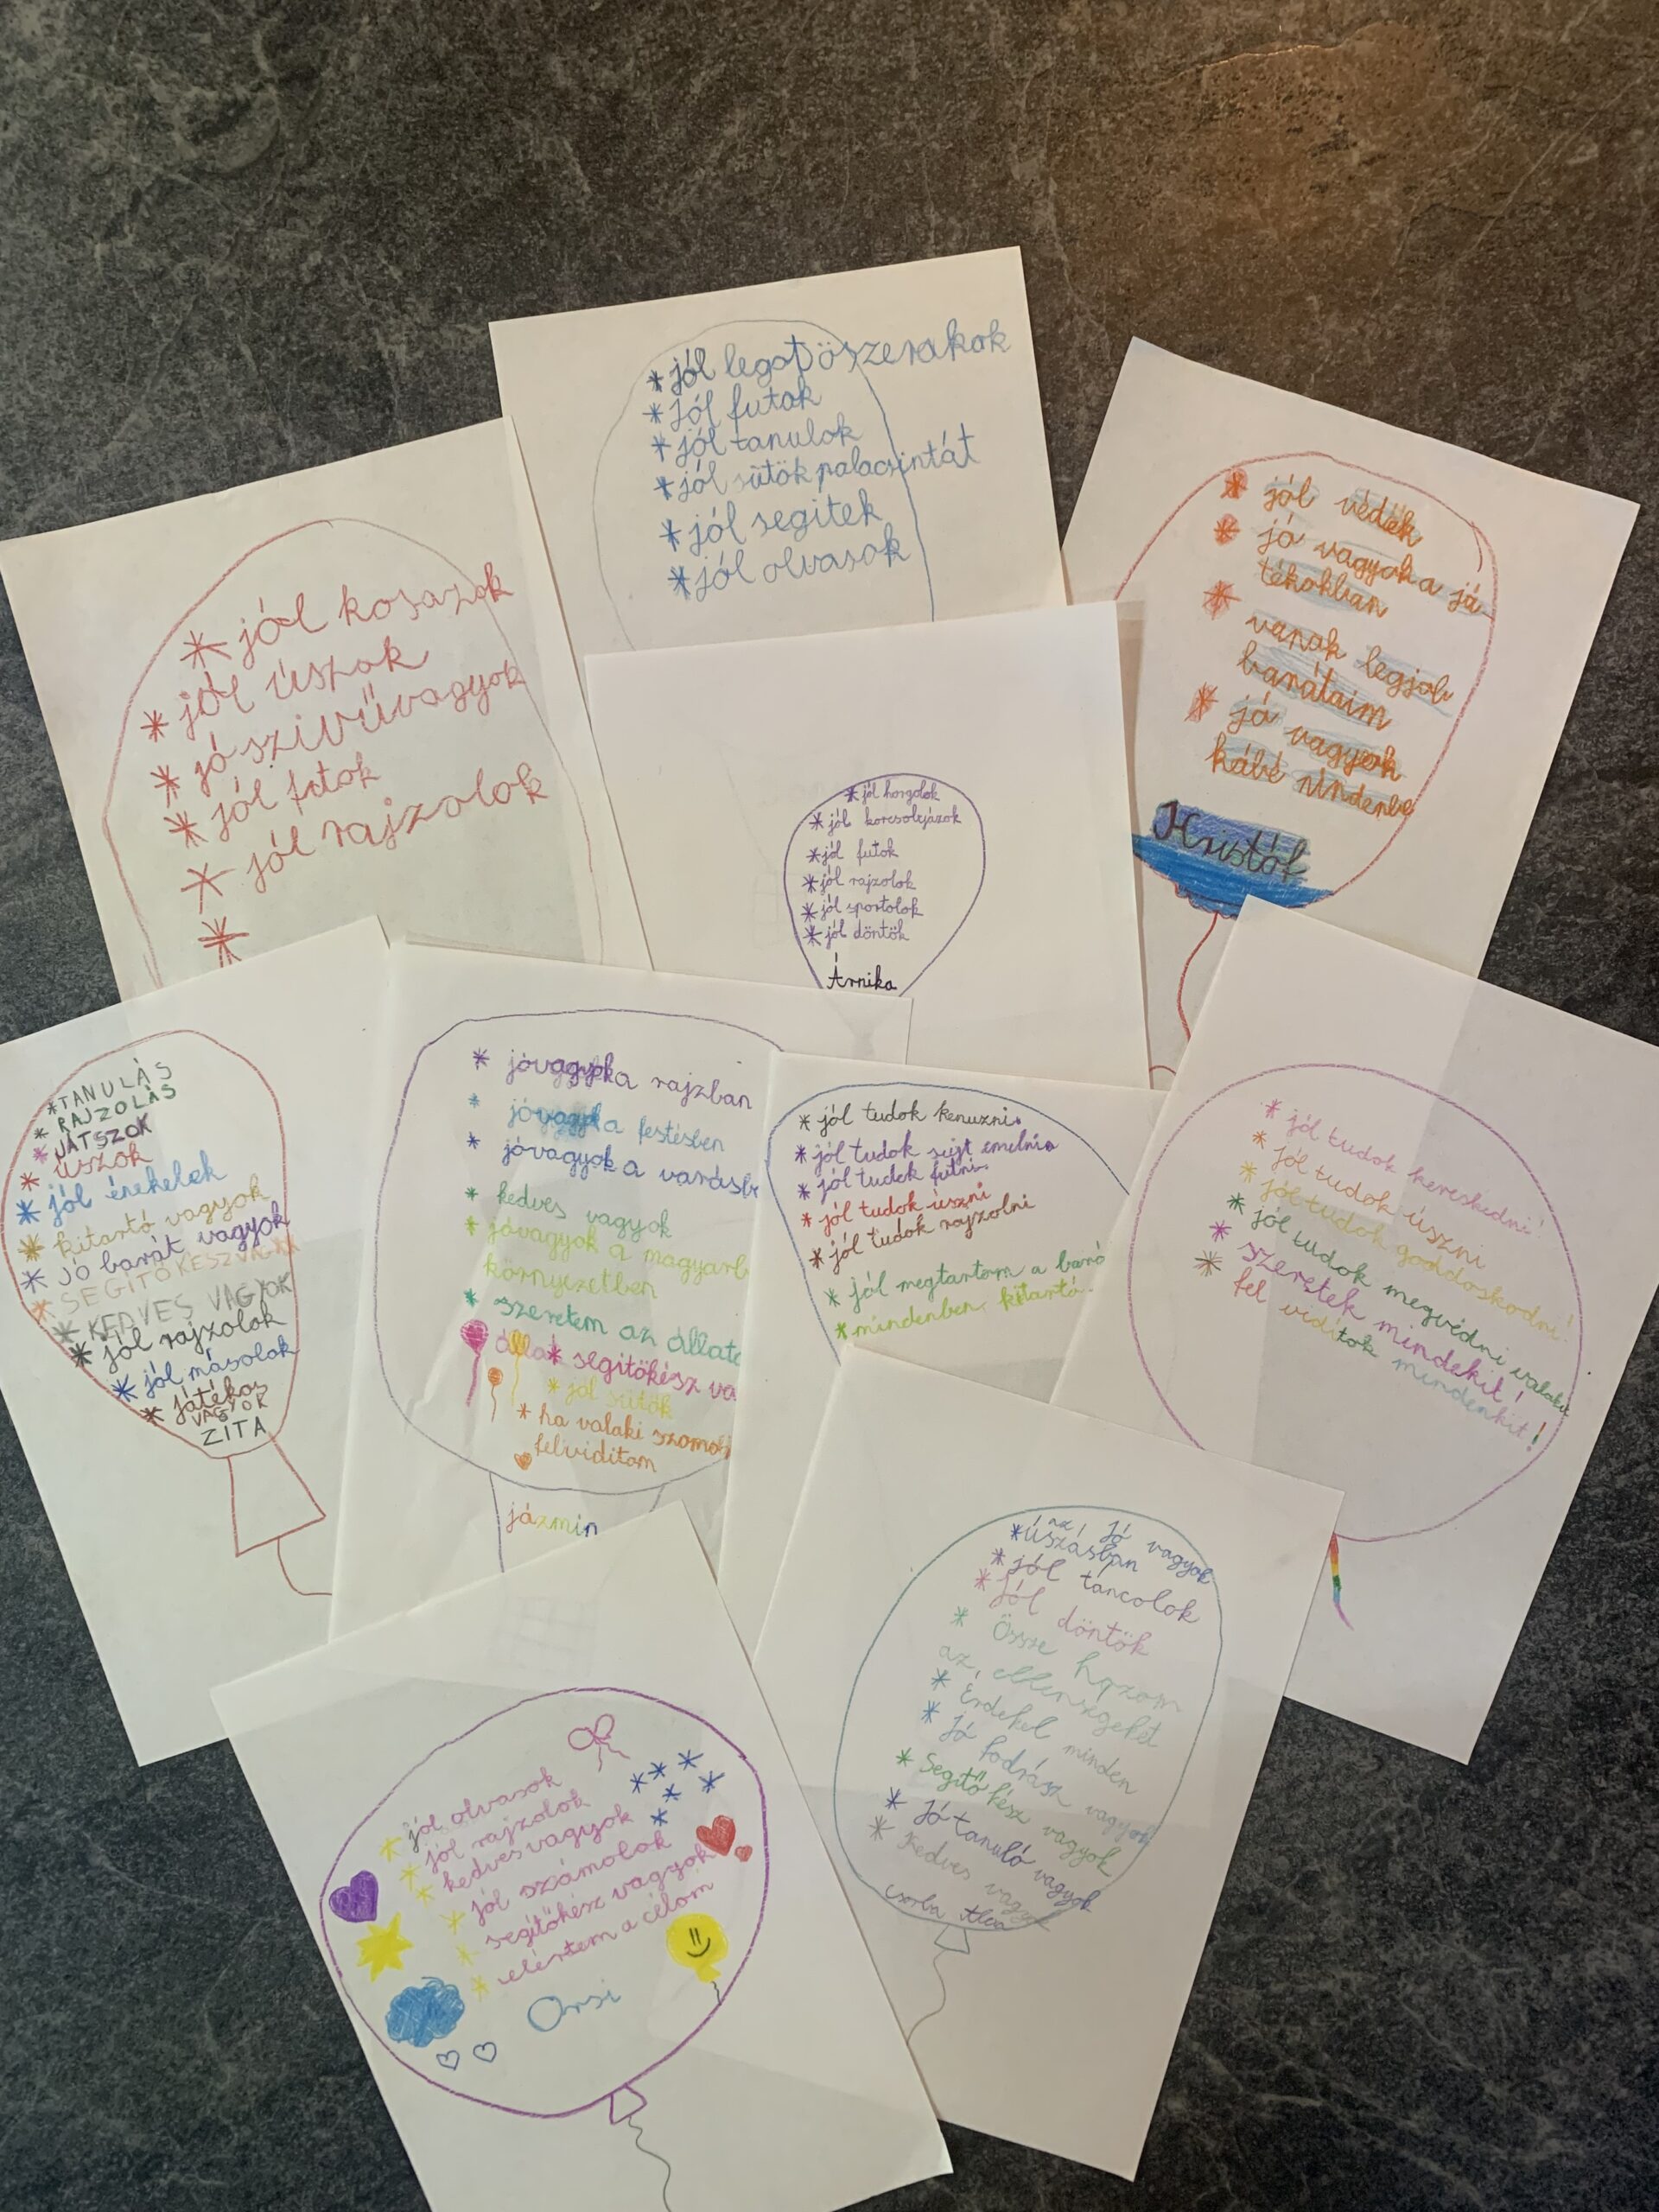 *jól legot öszerakok
*jól futok
*jól tanulok
*jól sütök palacsintát
*jól segitek
*jól olvasok
* jól kosazok
* jól úszok
* jó szivűvagyok
* jól futok
* jól rajzolok
*
* jól védek
* jó vagyok a já-
tékokban
* vanak legjob
barátaim
* jó vagyok
kábé mindenbe
Kristóf
*jól horgolok
*jól korcsolyázok
*jól futok
*jól rajzolok
*jól sportolok
*jól döntök
Árnika
*TANULÀS
* RAJZOLÀS
* JÁTSZOK
* ÚSZOK
* jól énekelek
* kitartó vagyok
* jó barát vagyok
* SEGÍTŐKÉSZ
* KEDVES VAGYOK
* jól rajzolok
* jól másolok
* játékos
VAGYOK
ZITA
* jóvagyok a rajzban
* jóvagyok a festésben
* jóvagyok a
* kedves vagyok
* jóvagyok a
környezetben
* szeretem az
* segítőkész
* jól sütök
* ha valaki
felviditom
jázmin
*jól tudok kenuzni.
*jól tudok sújt emelni
*jól tudok futni.
*jól tudok úszni
*jól tudok rajzolni
* jól megtartom a
*mindenben kitartó.
* jól tudok kereskedni!
* jól tudok úszni
* jól tudok gondoskodni!
* jól tudok megvédni
* szeretek mindekit!
* fel viditok mindenkit!
az, Jó vagyok
*úszásban
* jól táncolok
* Jól döntök
* Össze hozom
az ellenségeket
* Érdekel minden
* Jó fodrász vagyok
* Segitő kész vagyok
* Jó tanuló vagyok
* Kedves vagyok
Csorba
* jól olvasok
* jól rajzolok
* kedves vagyok
* jól számolok
* segítőkész vagyok
* elértem a célom
Orsi